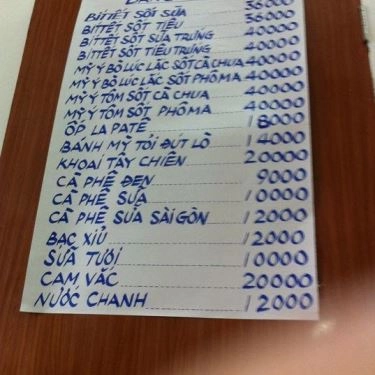 BITTẾT SỐT SỮA 36000
BITTẾT SỐT TIÊU 36000
BITTẾT SỐT SỮA TRỨNG 40000
BITTẾT SỐT TIÊU TRỨNG 40000
MỲ Ý BÒ LÚC LẮC SỐT CÀ CHUA 40000
MỲ Ý BÒ LÚC LẮC SỐT PHÔMA 40000
MỲ Ý TÔM SỐT CÀ CHUA 40000
MỲ Ý TÔM SỐT PHÔMA 40000
ỐP LA PATÊ 18000
BÁNH MỲ TỎI ĐÚT LÒ 14000
KHOAI TÂY CHIÊN 20000
CÀ PHÊ ĐEN 9000
CÀ PHÊ SỮA 10000
CÀ PHÊ SỮA SÀI GÒN 12000
BẠC XỈU 12000
SỮA TƯƠI 10000
CAM VẮC 20000
NƯỚC CHANH 12000